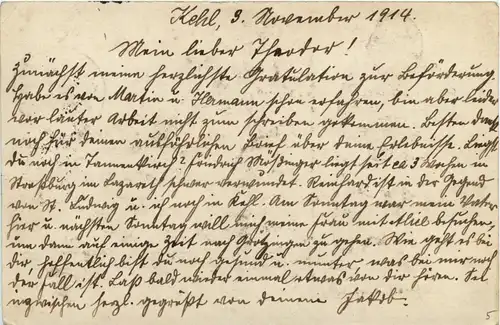 Kehl, 9. November 1914.
Mein lieber Theodor!
Zunächst meine herzlichste Gratulation zur Beförderung.
Habe es von Martin u. Hermann schon erfahren, bin aber leider
vor lauter Arbeit nicht zum schreiben gekommen. Besten Dank
noch für deinen ausführlichen Brief über deine Erlebnisse. Liegst
du noch in Tannenkirch? Friedrich liegt seit ca 3 Wochen in
Straßburg im Lazaret schwer verwundet. Reinhard ist in der Gegend
von St. Ludwig u. ich noch in Kehl. Am Sonntag war mein Vater
hier u. nächsten Sonntag will mich meine Frau mit besuchen,
um dann auf einige Zeit nach Grötzingen zu gehen. Wie geht es bei
dir hoffentlich bist du noch gesund u. munter, was bei mir noch
der Fall ist. Laß bald wieder einmal etwas von dir hören. Sei
inzwischen herzl. gegrüßt von deinem Jakob.
5